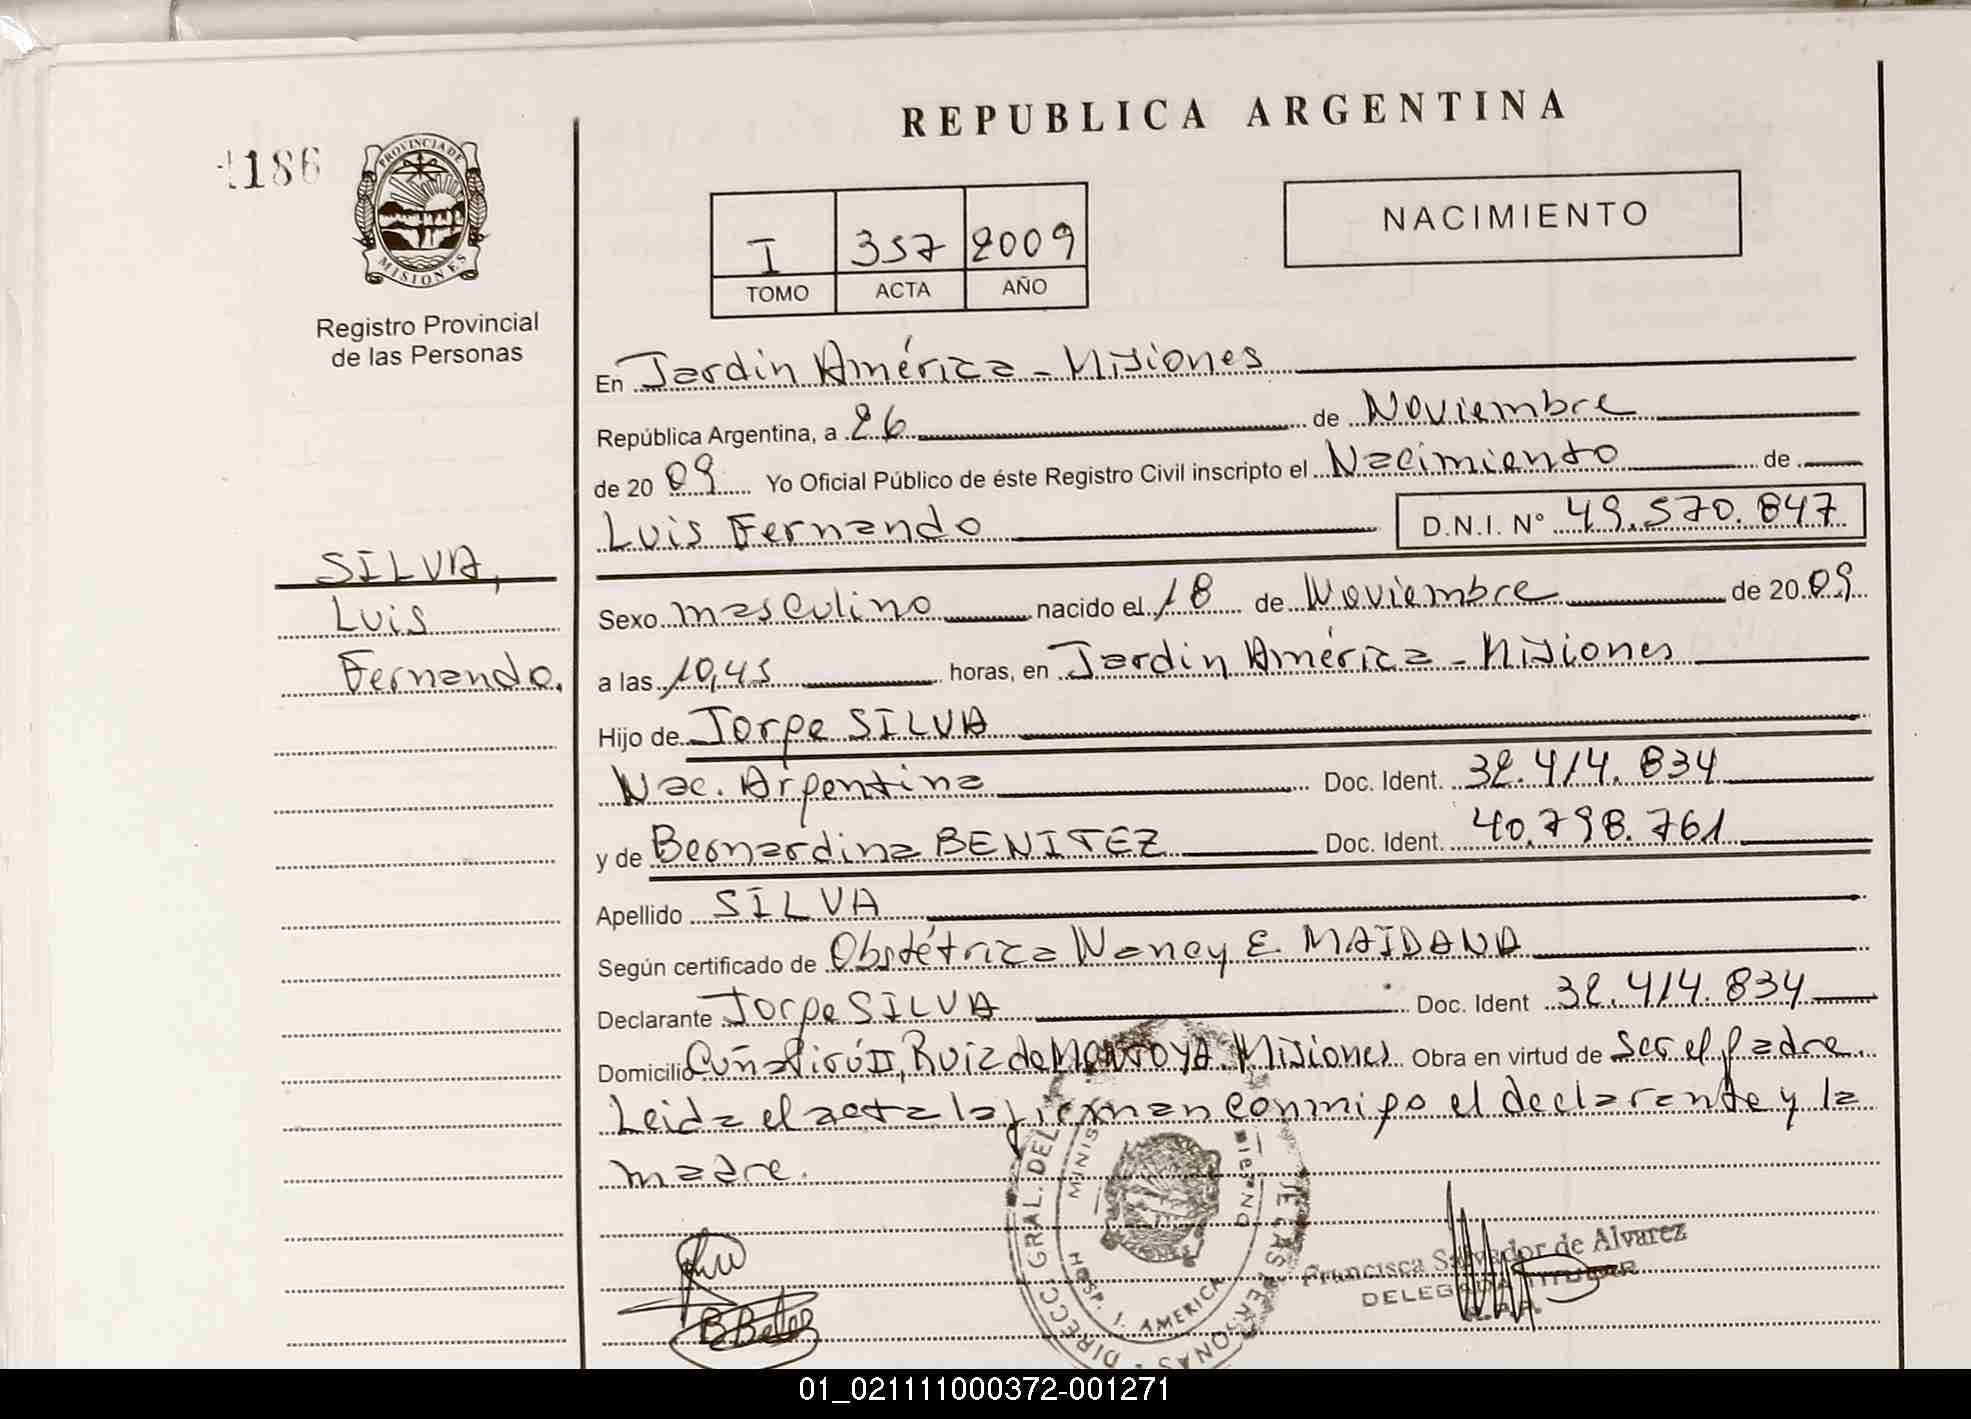 REPUBLICA ARGENTINA
1186
PROVINCIA DE
MISIONES
Registro Provincial
de las Personas
I 357 2009
TOMO ACTA AÑO
NACIMIENTO
SILVA,
Luis
Fernando.
En Jardin América - Misiones
República Argentina, a 26 de Noviembre
de 20 09 Yo Oficial Público de éste Registro Civil inscripto el Nacimiento de
Luis Fernando D.N.I. N° 49.570.847
Sexo masculino nacido el 18 de Noviembre de 20 09
a las 10,45 horas, en Jardin América - Misiones
Hijo de Jorge SILVA
Nac. Argentina Doc. Ident. 32.414.834
y de Bernardina BENITEZ Doc. Ident. 40.798.761
Apellido SILVA
Según certificado de Obstétrica Nancy E. MAIDANA
Declarante Jorge SILVA Doc. Ident 32.414.834
Domicilio Cuña Pirú II, Ruiz de MONTOYA. Misiones Obra en virtud de ser el padre.
Leida el acta la firman conmigo el declarante y la
madre.
DIRECC. GRAL. DEL
MINIS
HOSP. J. AMERICA
Francisca Salvador de Alvarez
DELEGADA TITULAR
01_021111000372-001271